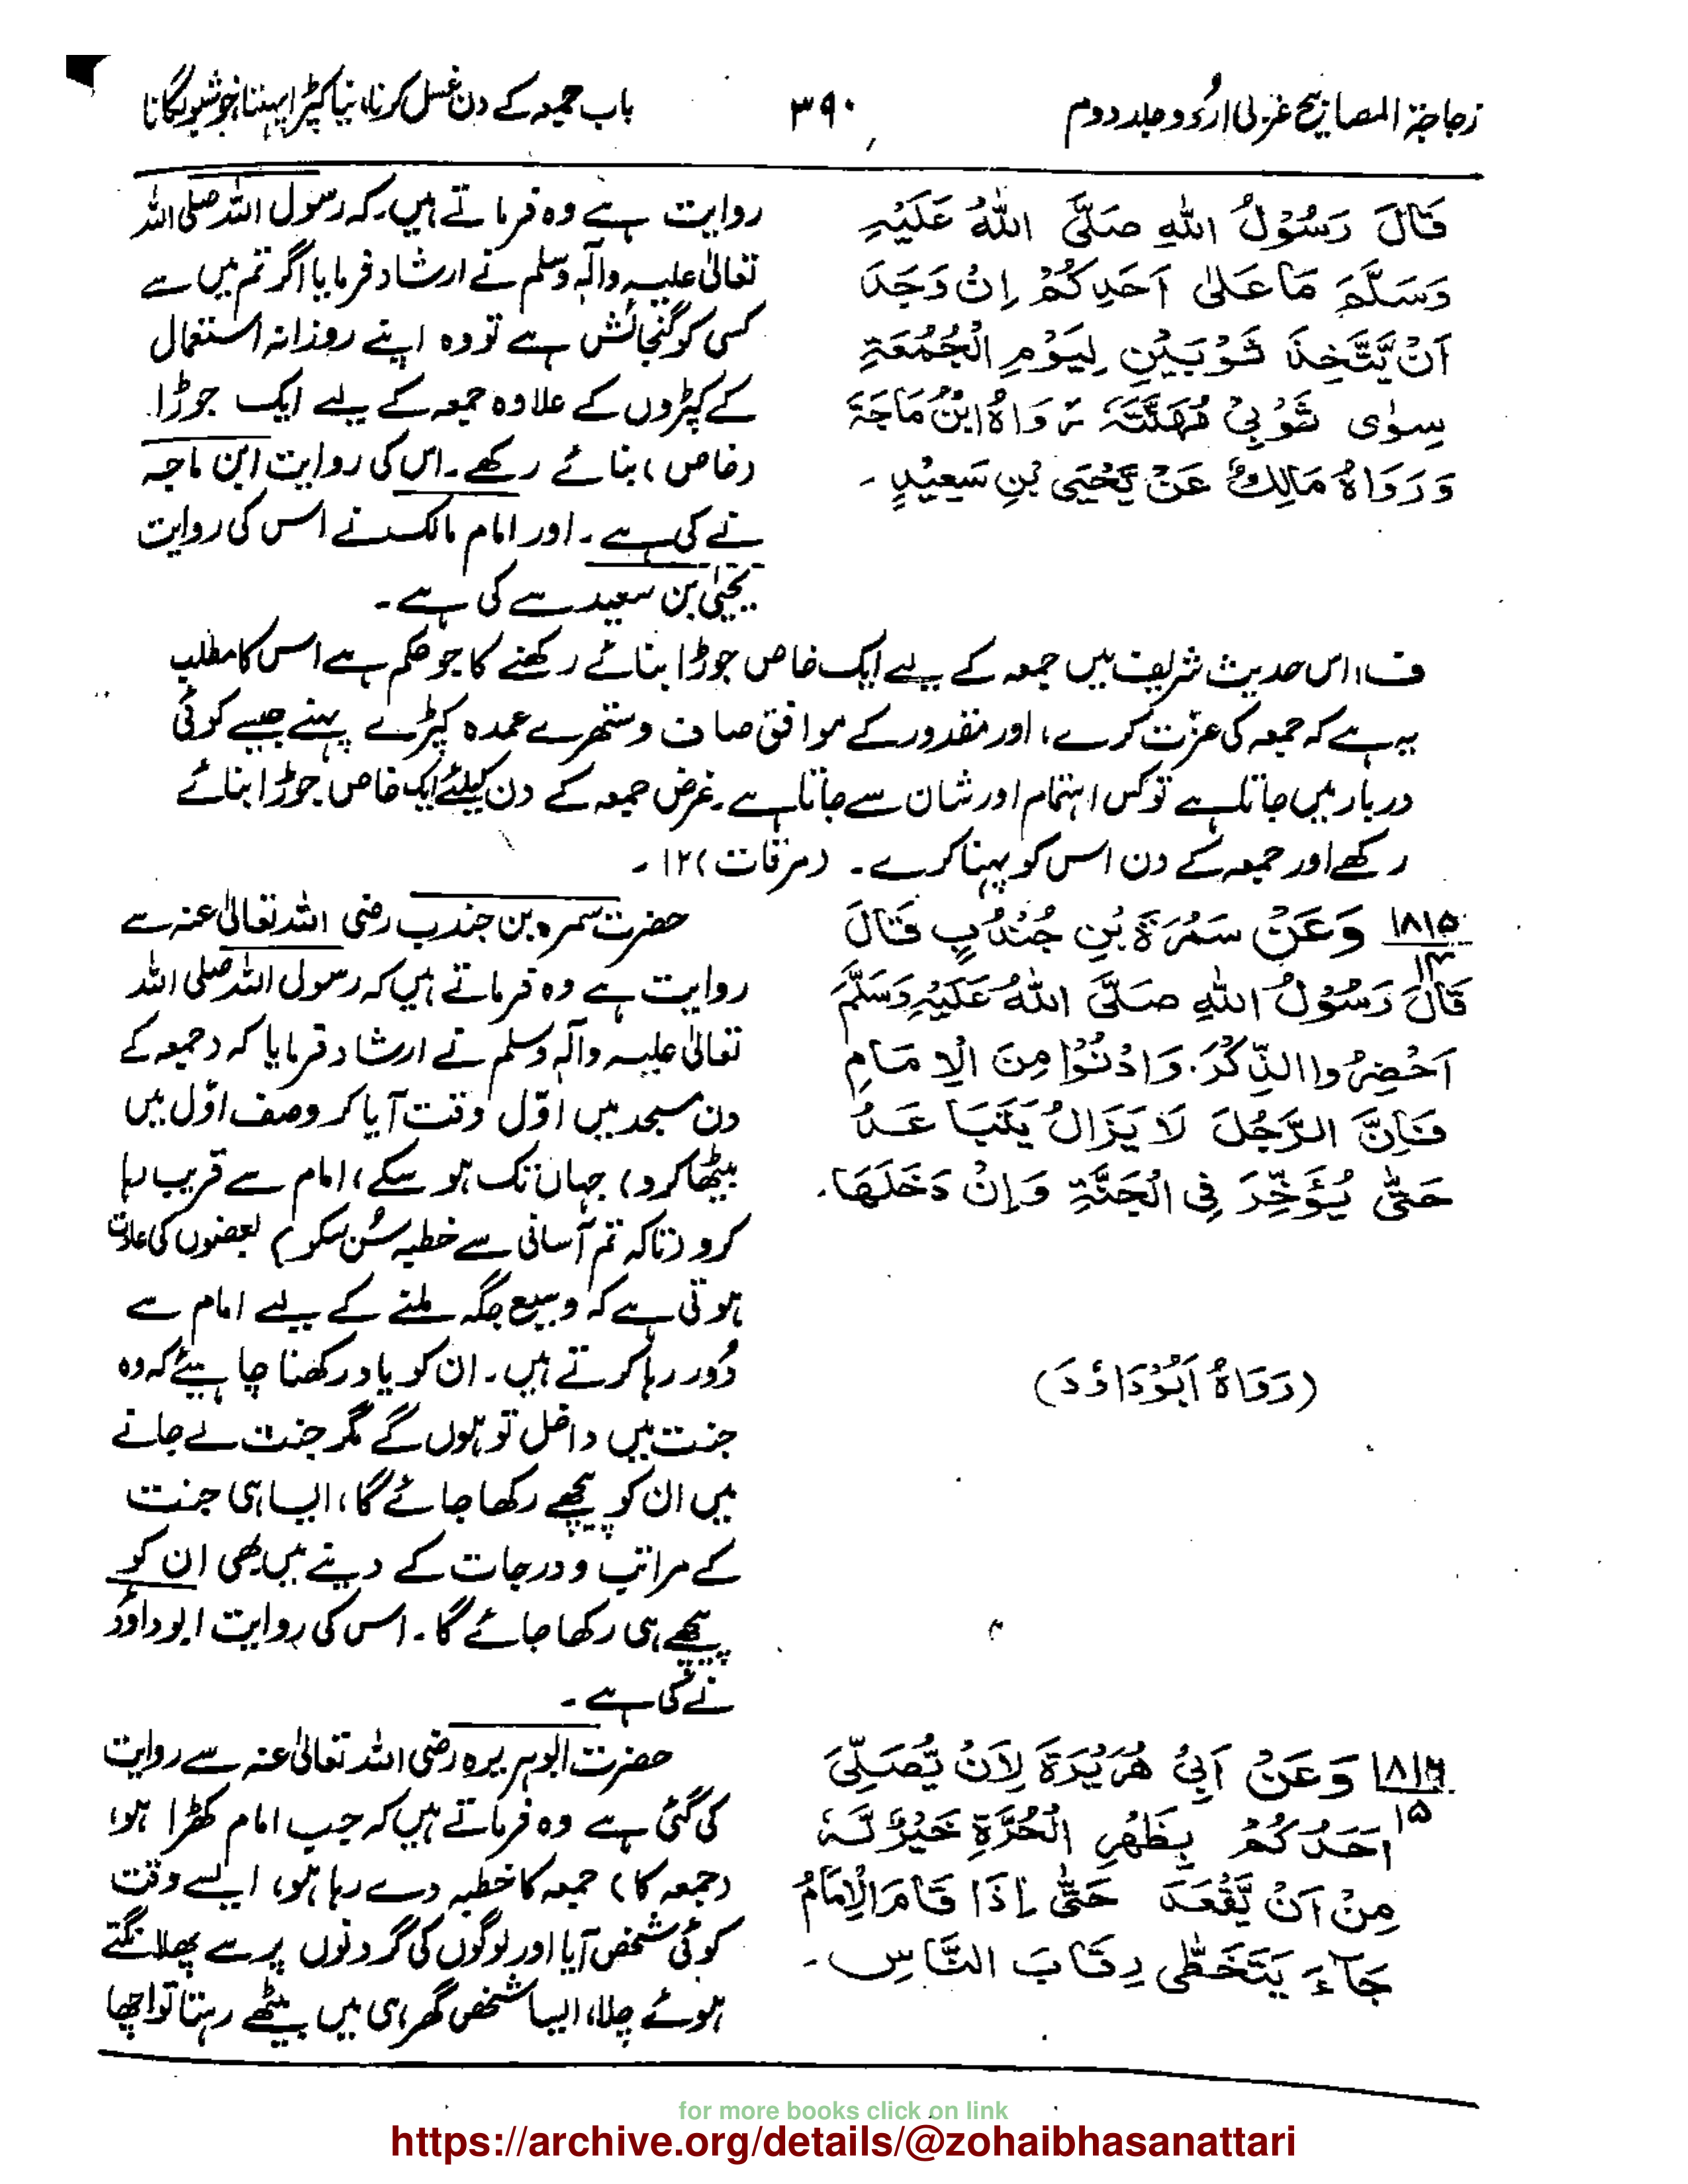 زجاجۃ المصابیح عربی اردو جلد دوم
۳۹۰
باب جمعہ کے دن غسل کرنا، نیا کپڑا پہننا، خوشبو لگانا
قَالَ رَسُوْلُ اللهِ صَلَّى اللهُ عَلَيْهِ
وَسَلَّمَ مَا عَلٰى اَحَدِكُمْ اِنْ وَجَدَ
اَنْ يَّتَّخِذَ ثَوْبَيْنِ لِيَوْمِ الْجُمُعَةِ
سِوٰى ثَوْبَىْ مَهْنَتِهٖ رَوَاهُ ابْنُ مَاجَةَ
وَرَوَاهُ مَالِكٌ عَنْ يَحْيَى بْنِ سَعِيْدٍ ۔
روایت ہے وہ فرماتے ہیں۔ کہ رسول اللہ صلی اللہ
تعالیٰ علیہ وآلہ وسلم نے ارشاد فرمایا اگر تم میں سے
کسی کو گنجائش ہے تو وہ اپنے روزانہ استعمال
کے کپڑوں کے علاوہ جمعہ کے لیے ایک جوڑا
(خاص) بنائے رکھے۔ اس کی روایت ابن ماجہ
نے کی ہے۔ اور امام مالک نے اس کی روایت
یحییٰ بن سعید سے کی ہے۔
ف: اس حدیث شریف میں جمعہ کے لیے ایک خاص جوڑا بنائے رکھنے کا جو حکم ہے اس کا مطلب
یہ ہے کہ جمعہ کی عزت کرے، اور مقدور کے موافق صاف و ستھرے عمدہ کپڑے پہنے جیسے کوئی
دربار میں جاتا ہے تو کس اہتمام اور شان سے جاتا ہے۔ غرض جمعہ کے دن کیلئے ایک خاص جوڑا بنائے
رکھے اور جمعہ کے دن اس کو پہنا کرے۔ (مرقات) ۱۲۔
۱۸۱۵ وَعَنْ سَمُرَةَ بْنِ جُنْدُبٍ قَالَ
۱۴
قَالَ رَسُوْلُ اللهِ صَلَّى اللهُ عَلَيْهِ وَسَلَّمَ
اَحْضِرُوا الذِّكْرَ۔ وَادْنُوْا مِنَ الْاِمَامِ
فَاِنَّ الرَّجُلَ لَا يَزَالُ يَتَبَاعَدُ
حَتّٰى يُؤَخَّرَ فِى الْجَنَّةِ وَاِنْ دَخَلَهَا۔
(رَوَاهُ اَبُوْدَاؤدَ)
حضرت سمرہ بن جندب رضی اللہ تعالیٰ عنہ سے
روایت ہے وہ فرماتے ہیں کہ رسول اللہ صلی اللہ
تعالیٰ علیہ وآلہ وسلم نے ارشاد فرمایا کہ (جمعہ کے
دن مسجد میں اوّل وقت آیا کرو صف اوّل میں
بیٹھا کرو) جہاں تک ہو سکے، امام سے قریب رہا
کرو (تاکہ تم آسانی سے خطبہ سُن سکو) بعضوں کی عادت
ہوتی ہے کہ وسیع جگہ ملنے کے لیے امام سے
دُور رہا کرتے ہیں۔ ان کو یاد رکھنا چاہیئے کہ وہ
جنت میں داخل تو ہوں گے مگر جنت لے جانے
میں ان کو پیچھے رکھا جائے گا، ایسا ہی جنت
کے مراتب و درجات کے دینے میں بھی ان کو
پیچھے ہی رکھا جائے گا۔ اس کی روایت ابوداؤد
نے کی ہے۔
۱۸۱۶ وَعَنْ اَبِىْ هُرَيْرَةَ لِاَنْ يُّصَلِّىَ
۱۵
اَحَدُكُمْ بِظَهْرِ الْحُرَّةِ خَيْرٌ لَّهٗ
مِنْ اَنْ يَّقْعُدَ حَتّٰى اِذَا قَامَ الْاِمَامُ
جَآءَ يَتَخَطّٰى رِقَابَ النَّاسِ۔
حضرت ابوہریرہ رضی اللہ تعالیٰ عنہ سے روایت
کی گئی ہے وہ فرماتے ہیں کہ جب امام کھڑا ہوا
(جمعہ کا) جمعہ کا خطبہ دے رہا ہو، ایسے وقت
کوئی شخص آیا اور لوگوں کی گردنوں پر سے پھلانگتے
ہوئے چلا، ایسا شخص گھر ہی میں بیٹھے رہتا تو اچھا
for more books click on link
https://archive.org/details/@zohaibhasanattari